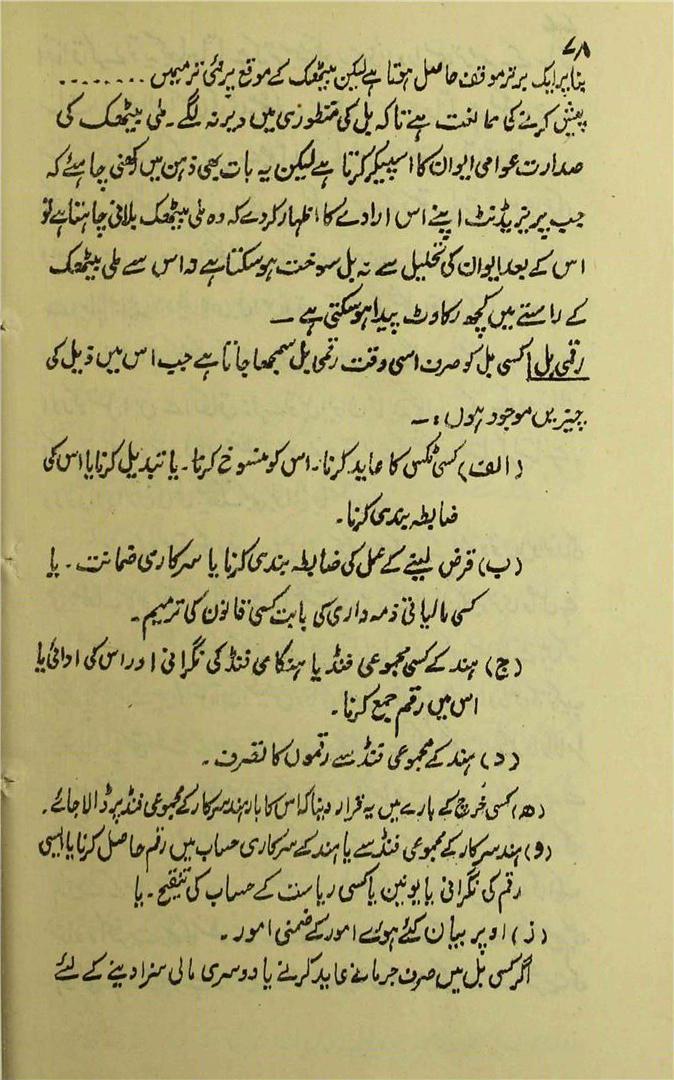 ۷۸
بنا پر ایک برتر موقف حاصل ہوتا ہے لیکن بیٹھک کے موقع پر نئی ترمیمیں ........
پیش کرنے کی ممانعت ہے تاکہ بل کی منظوری میں دیر نہ لگے۔ ملی بیٹھک کی
صدارت عوامی ایوان کا اسپیکر کرتا ہے لیکن یہ بات بھی ذہن میں رکھنی چاہئے کہ
جب پریزیڈنٹ اپنے اس ارادے کا اظہار کردے کہ وہ ملی بیٹھک بلانی چاہتا ہے تو
اس کے بعد ایوان کی تحلیل سے نہ بل سوخت ہوسکتا ہے نہ اس سے ملی بیٹھک
کے راستے میں کچھ رکاوٹ پیدا ہوسکتی ہے ۔
رقمی بل | کسی بل کو صرف اسی وقت رقمی بل سمجھا جاتا ہے جب اس میں ذیل کی
چیزیں موجود ہوں :۔
(الف) کسی ٹکس کا عاید کرنا۔ اس کو منسوخ کرنا۔ یا تبدیل کرنا یا اس کی
ضابطہ بندی کرنا۔
(ب) قرض لینے کے عمل کی ضابطہ بندی کرنا یا سرکاری ضمانت۔ یا
کسی مالیاتی ذمہ داری کی بابت کسی قانون کی ترمیم۔
(ج) ہند کے کسی مجموعی فنڈ یا ہنگامی فنڈ کی نگرانی اور اس کی ادائی یا
اس میں رقم جمع کرنا۔
(د) ہند کے مجموعی فنڈ سے رقموں کا تصرف۔
(ھ) کسی خرچ کے بارے میں یہ قرار دینا کہ اس کا بار ہند سرکار کے مجموعی فنڈ پر ڈالا جائے۔
(و) ہند سرکار کے مجموعی فنڈ سے یا ہند کے سرکاری حساب میں رقم حاصل کرنا یا ایسی
رقم کی نگرانی یا یونین یا کسی ریاست کے حساب کی تنقیح۔ یا
(ز) اوپر بیان کئے ہوئے امور کے ضمنی امور۔
اگر کسی بل میں صرف جرمانے عاید کرنے یا دوسری مالی سزا دینے کے لئے